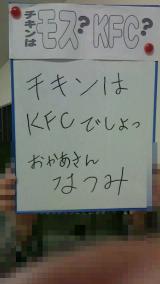 チキンは モス? KFC?
チキンは
KFCでしょっ
おかあさん
はつみ